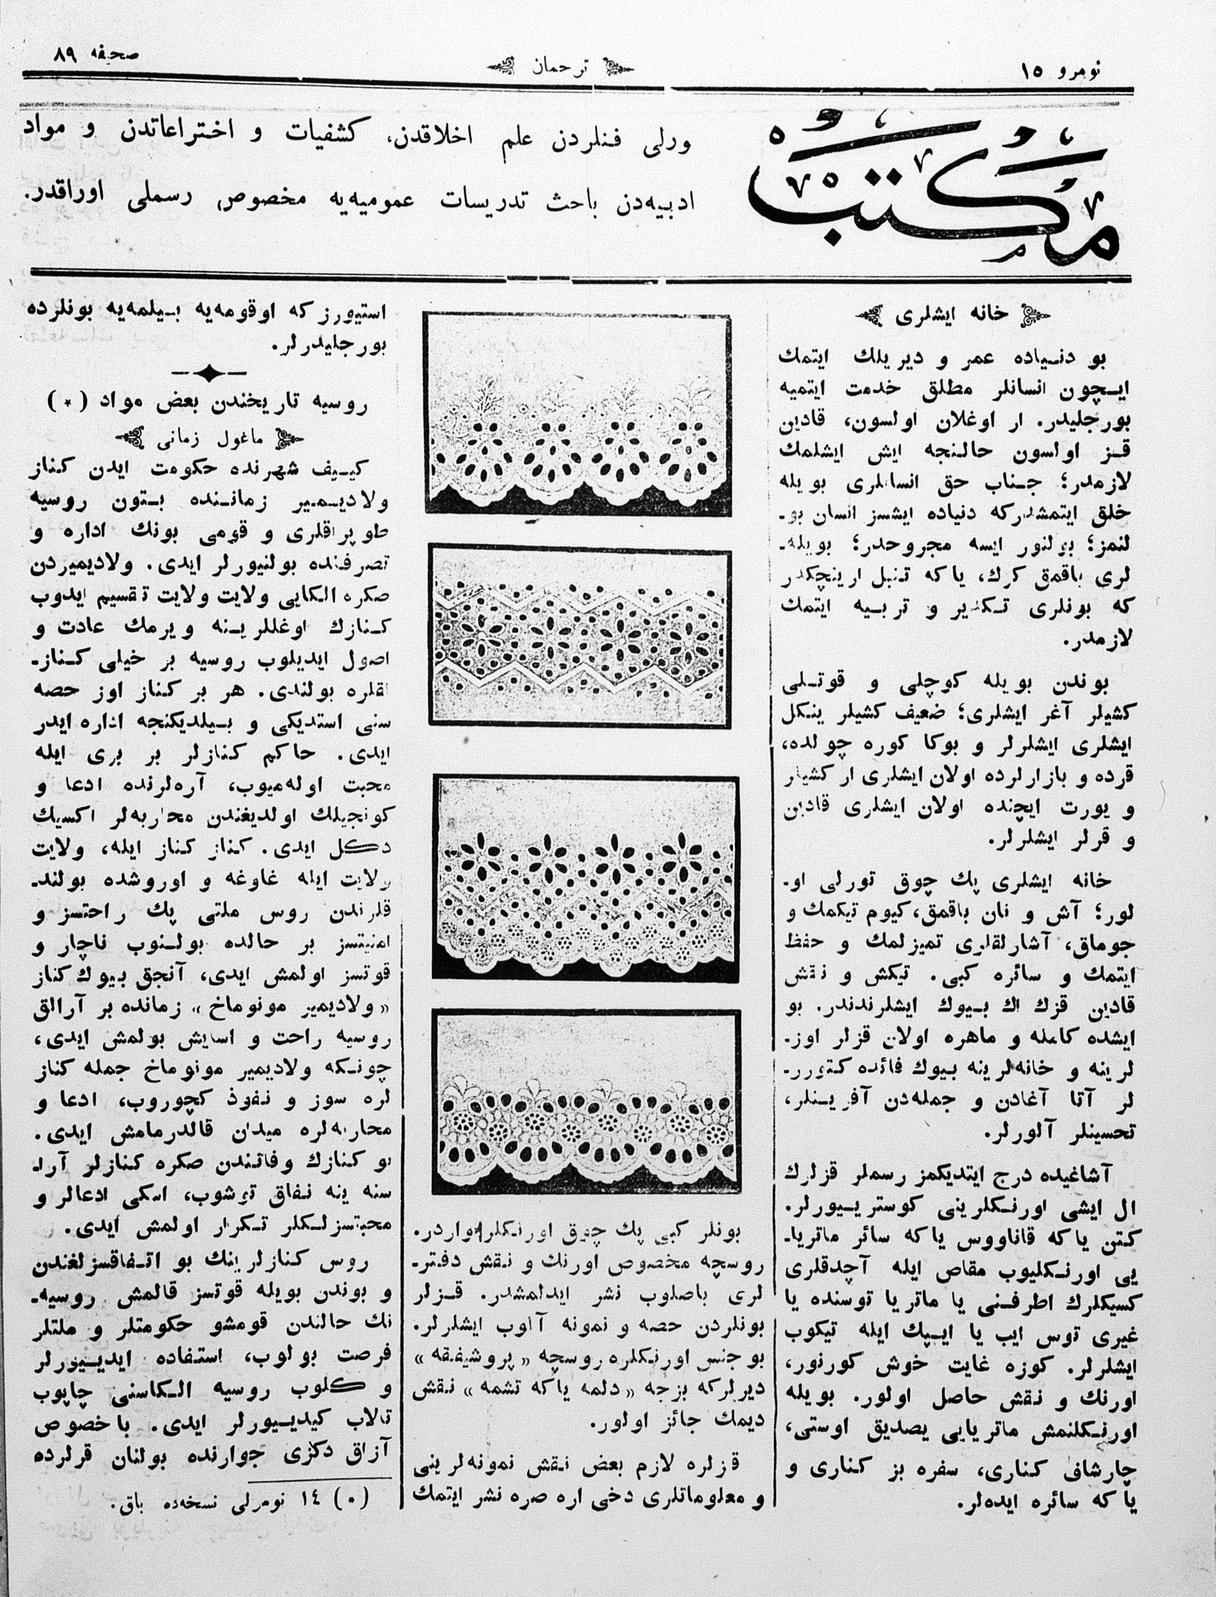 نومرو ١٥
ترحمان
صحیفه ٨٩
مكتب
ورلی فنلردن علم اخلاقدن، كشفیات و اختراعاتدن و مواد
ادبیه‌دن باحث تدریسات عمومیه‌یه مخصوص رسملی اوراقدر.
خانه ایشلری
بو دنیاده عمر و دیریلك ایتمك
ایچون انسانلر مطلق خدمت ایتمیه
بورجلیدر. ار اوغلان اولسون، قادین
قز اولسون حالنجه ایش ایشلمك
لازمدر؛ جناب حق انسانلری بویله
خلق ایتمشدركه دنیاده ایشسز انسان بو-
لنمز؛ بولنور ایسه مجروحدر؛ بویله-
لری باقمق كرك، یا‌كه تنبل ارینچكدر
كه بونلری تكدیر و تربیه ایتمك
لازمدر.
بوندن بویله كوچلی و قوتلی
كشیلر آغر ایشلری؛ ضعیف كشیلر ینكل
ایشلری ایشلرلر و بوكا كوره چولده،
قرده و بازارلرده اولان ایشلری ار كشیلر
و یورت ایچنده اولان ایشلری قادین
و قزلر ایشلرلر.
خانه ایشلری پك چوق تورلی او-
لور؛ آش و نان باقمق، كیوم تیكمك و
جوماق، آشارلقلری تمیزلمك و حفظ
ایتمك و سائره كبی. تیكش و نقش
قادین قزك اك بیوك ایشلرندندر. بو
ایشده كامله و ماهره اولان قزلر اوز-
لرینه و خانه‌لرینه بیوك فائده كتورر-
لر آتا آغادن و جمله‌دن آفرینلر،
تحسینلر آلورلر.
آشاغیده درج ایتدیكمز رسملر قزلرك
ال ایشی اورنكلرینی كوستریورلر.
كتن یا‌كه قاناووس یا‌كه سائر ماتریا-
یی اورنكلیوب مقاص ایله آچدقلری
كسیكلرك اطرفنی یا ماتریا توسنده یا
غیری توس ایب یا ایپك ایله تیكوب
ایشلرلر. كوزه غایت خوش كورنور،
اورنك و نقش حاصل اولور. بویله
اورنكلنمش ماتریایی یصدیق اوستی،
چارشاف كناری، سفره بز كناری و
یا‌كه سائره ایده‌لر.
بونلر كبی پك چوق اورنكلر واردر.
روسچه مخصوص اورنك و نقش دفتر-
لری باصلوب نشر ایدلمشدر. قزلر
بونلردن حصه و نمونه آلوب ایشلرلر.
بو جنس اورنكلره روسچه «پروشیفقه»
دیرلركه بزجه «دلمه یا‌كه تشمه» نقش
دیمك جائز اولور.
قزلره لازم بعض نقش نمونه‌لرینی
و معلوماتلری دخی اره صره نشر ایتمك
استیورز كه اوقومه‌یه بیلمه‌یه بونلرده
بورجلیدرلر.
روسیه تاریخندن بعض مواد (*)
ماغول زمانی
كییف شهرنده حكومت ایدن كناز
ولادیمیر زماننده بتون روسیه
طوپراقلری و قومی بونك اداره و
تصرفنده بولنیورلر ایدی. ولادیمیردن
صكره الكایی ولایت ولایت تقسیم ایدوب
كنازك اوغللرینه ویرمك عادت و
اصول ایدیلوب روسیه بر خیلی كناز-
لقلره بولندی. هر بر كناز اوز حصه
سنی استدیكی و بیلدیكنجه اداره ایدر
ایدی. حاكم كنازلر بر بری ایله
محبت اوله‌میوب، آره‌لرنده ادعا و
كونجیلك اولدیغندن محاربه‌لر اكسیك
دكل ایدی. كناز كناز ایله، ولایت
ولایت ایله غاوغه و اوروشده بولند-
قلرندن روس ملتی پك راحتسز و
امنیتسز بر حالده بولنوب ناچار و
قوتسز اولمش ایدی، آنجق بیوك كناز
«ولادیمیر مونوماخ» زمانده بر آرالق
روسیه راحت و اسایش بولمش ایدی،
چونكه ولادیمیر مونوماخ جمله كناز
لره سوز و نفوذ كچوروب، ادعا و
محاربه‌لره میدان قالدرمامش ایدی.
بو كنازك وفاتندن صكره كنازلر آرا-
سنه ینه نفاق توشوب، اسكی ادعالر و
محبتسزلكلر تكرار اولمش ایدی.
روس كنازلرینك بو اتفاقسزلغندن
و بوندن بویله قوتسز قالمش روسیه-
نك حالندن قومشو حكومتلر و ملتلر
فرصت بولوب، استفاده ایدییورلر
و كلوب روسیه الكاسنی چاپوب
تالاب كیدییورلر ایدی. باخصوص
آزاق دكزی جوارنده بولنان قرلرده
(٠) ١٤ نومرلی نسخه‌ده باق.